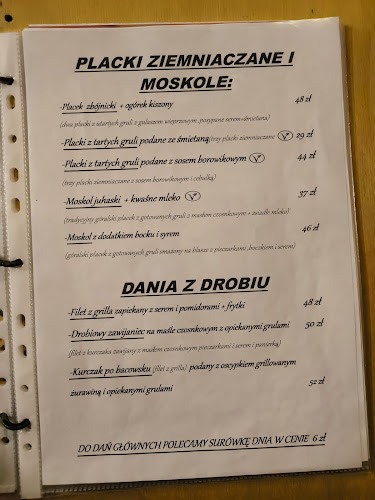 PLACKI ZIEMNIACZANE I
MOSKOLE:
-Placek zbójnicki + ogórek kiszony 48 zł
(dwa placki z utartych gruli z gulaszem wieprzowym, posypane serem+śmietana)
-Placki z tartych gruli podane ze śmietaną(trzy placki ziemniaczane 29 zł
-Placki z tartych gruli podane z sosem borowikowym 44 zł
(trzy placki ziemniaczane z sosem borowikowym i cebulką)
-Moskol juhaski + kwaśne mleko 37 zł
(tradycyjny góralski placek z gotowanych gruli z masłem czosnkowym + zsiadłe mleko)
-Moskol z dodatkiem bocku i syrem 46 zł
(góralski placek z gotowanych gruli smażony na blasze z pieczarkami ,boczkiem i serem)
DANIA Z DROBIU
-Filet z grilla zapiekany z serem i pomidorami + frytki 48 zł
-Drobiowy zawijaniec na maśle czosnkowym z opiekanymi grulami 50 zł
(filet z kurczaka zawijany z masłem czosnkowym pieczarkami i serem i panierką)
-Kurczak po bacowsku (filet z grilla) podany z oscypkiem grillowanym
żurawiną i opiekanymi grulami 52 zł
DO DAŃ GŁÓWNYCH POLECAMY SURÓWKĘ DNIA W CENIE 6 zł